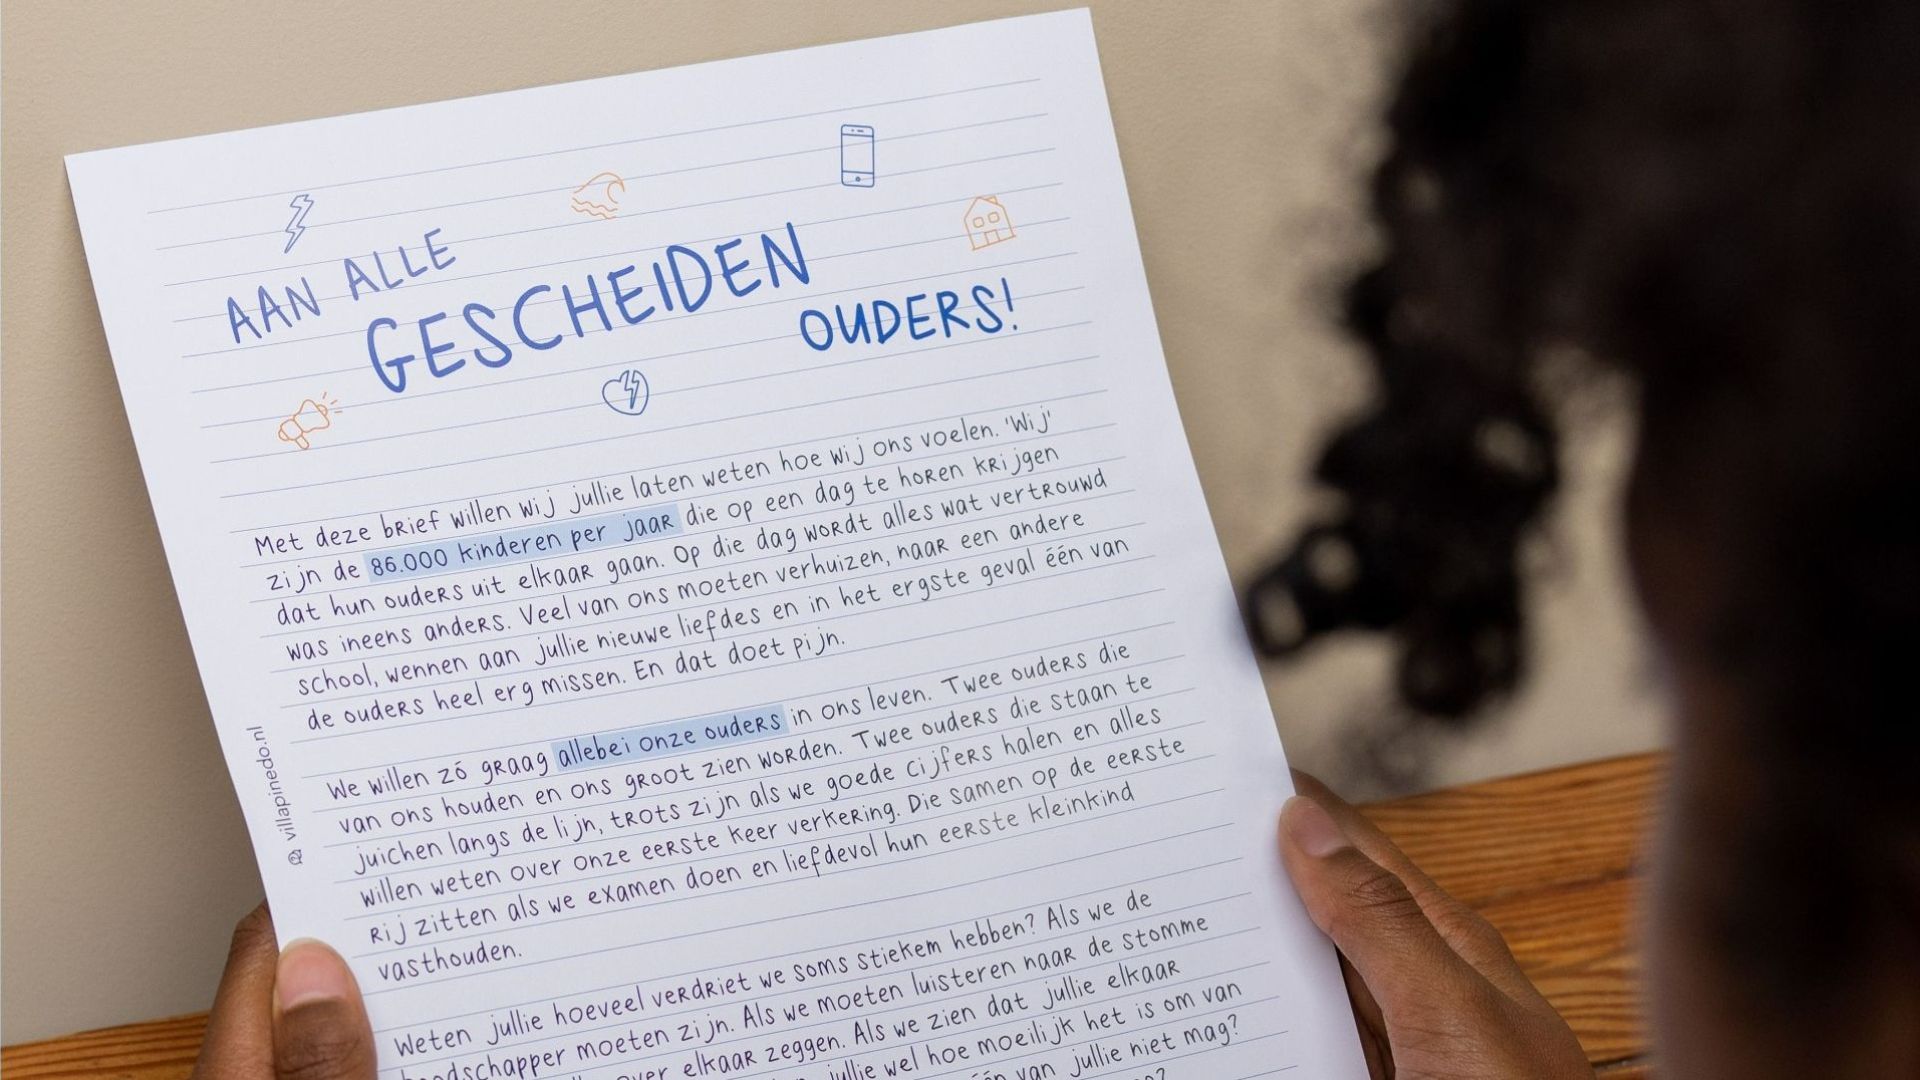 AAN ALLE
GESCHEIDEN
OUDERS!
Met deze brief willen wij jullie laten weten hoe wij ons voelen. 'Wij'
zijn de 86.000 kinderen per jaar die op een dag te horen krijgen
dat hun ouders uit elkaar gaan. Op die dag wordt alles wat vertrouwd
was ineens anders. Veel van ons moeten verhuizen, naar een andere
school, wennen aan jullie nieuwe liefdes en in het ergste geval één van
de ouders heel erg missen. En dat doet pijn.
We willen zó graag allebei onze ouders in ons leven. Twee ouders die
van ons houden en ons groot zien worden. Twee ouders die staan te
juichen langs de lijn, trots zijn als we goede cijfers halen en alles
willen weten over onze eerste keer verkering. Die samen op de eerste
rij zitten als we examen doen en liefdevol hun eerste kleinkind
vasthouden.
Weten jullie hoeveel verdriet we soms stiekem hebben? Als we de
boodschapper moeten zijn. Als we moeten luisteren naar de stomme
over elkaar zeggen. Als we zien dat jullie elkaar
jullie wel hoe moeilijk het is om van
één van jullie niet mag?
villapinedo.nl